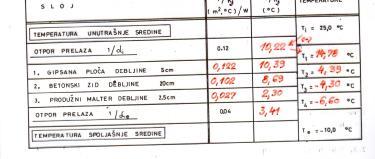 SLOJ
(m²,°C)/W (°C) TEMPERATURE
TEMPERATURA UNUTRAŠNJE SREDINE Ti = 25,0 °C
OTPOR PRELAZA 1/di 0.12 10,22
T1 = 14,78 °C
1. GIPSANA PLOČA DEBLJINE 5cm 0,122 10,39
T2 = 4,39 °C
2. BETONSKI ZID DEBLJINE 20cm 0,102 8,69
T3 = -4,30 °C
3. PRODUŽNI MALTER DEBLJINE 2,5cm 0,027 2,30
T4 = -6,60 °C
OTPOR PRELAZA 1/de 0,04 3,41
TEMPERATURA SPOLJAŠNJE SREDINE Te = -10,0 °C